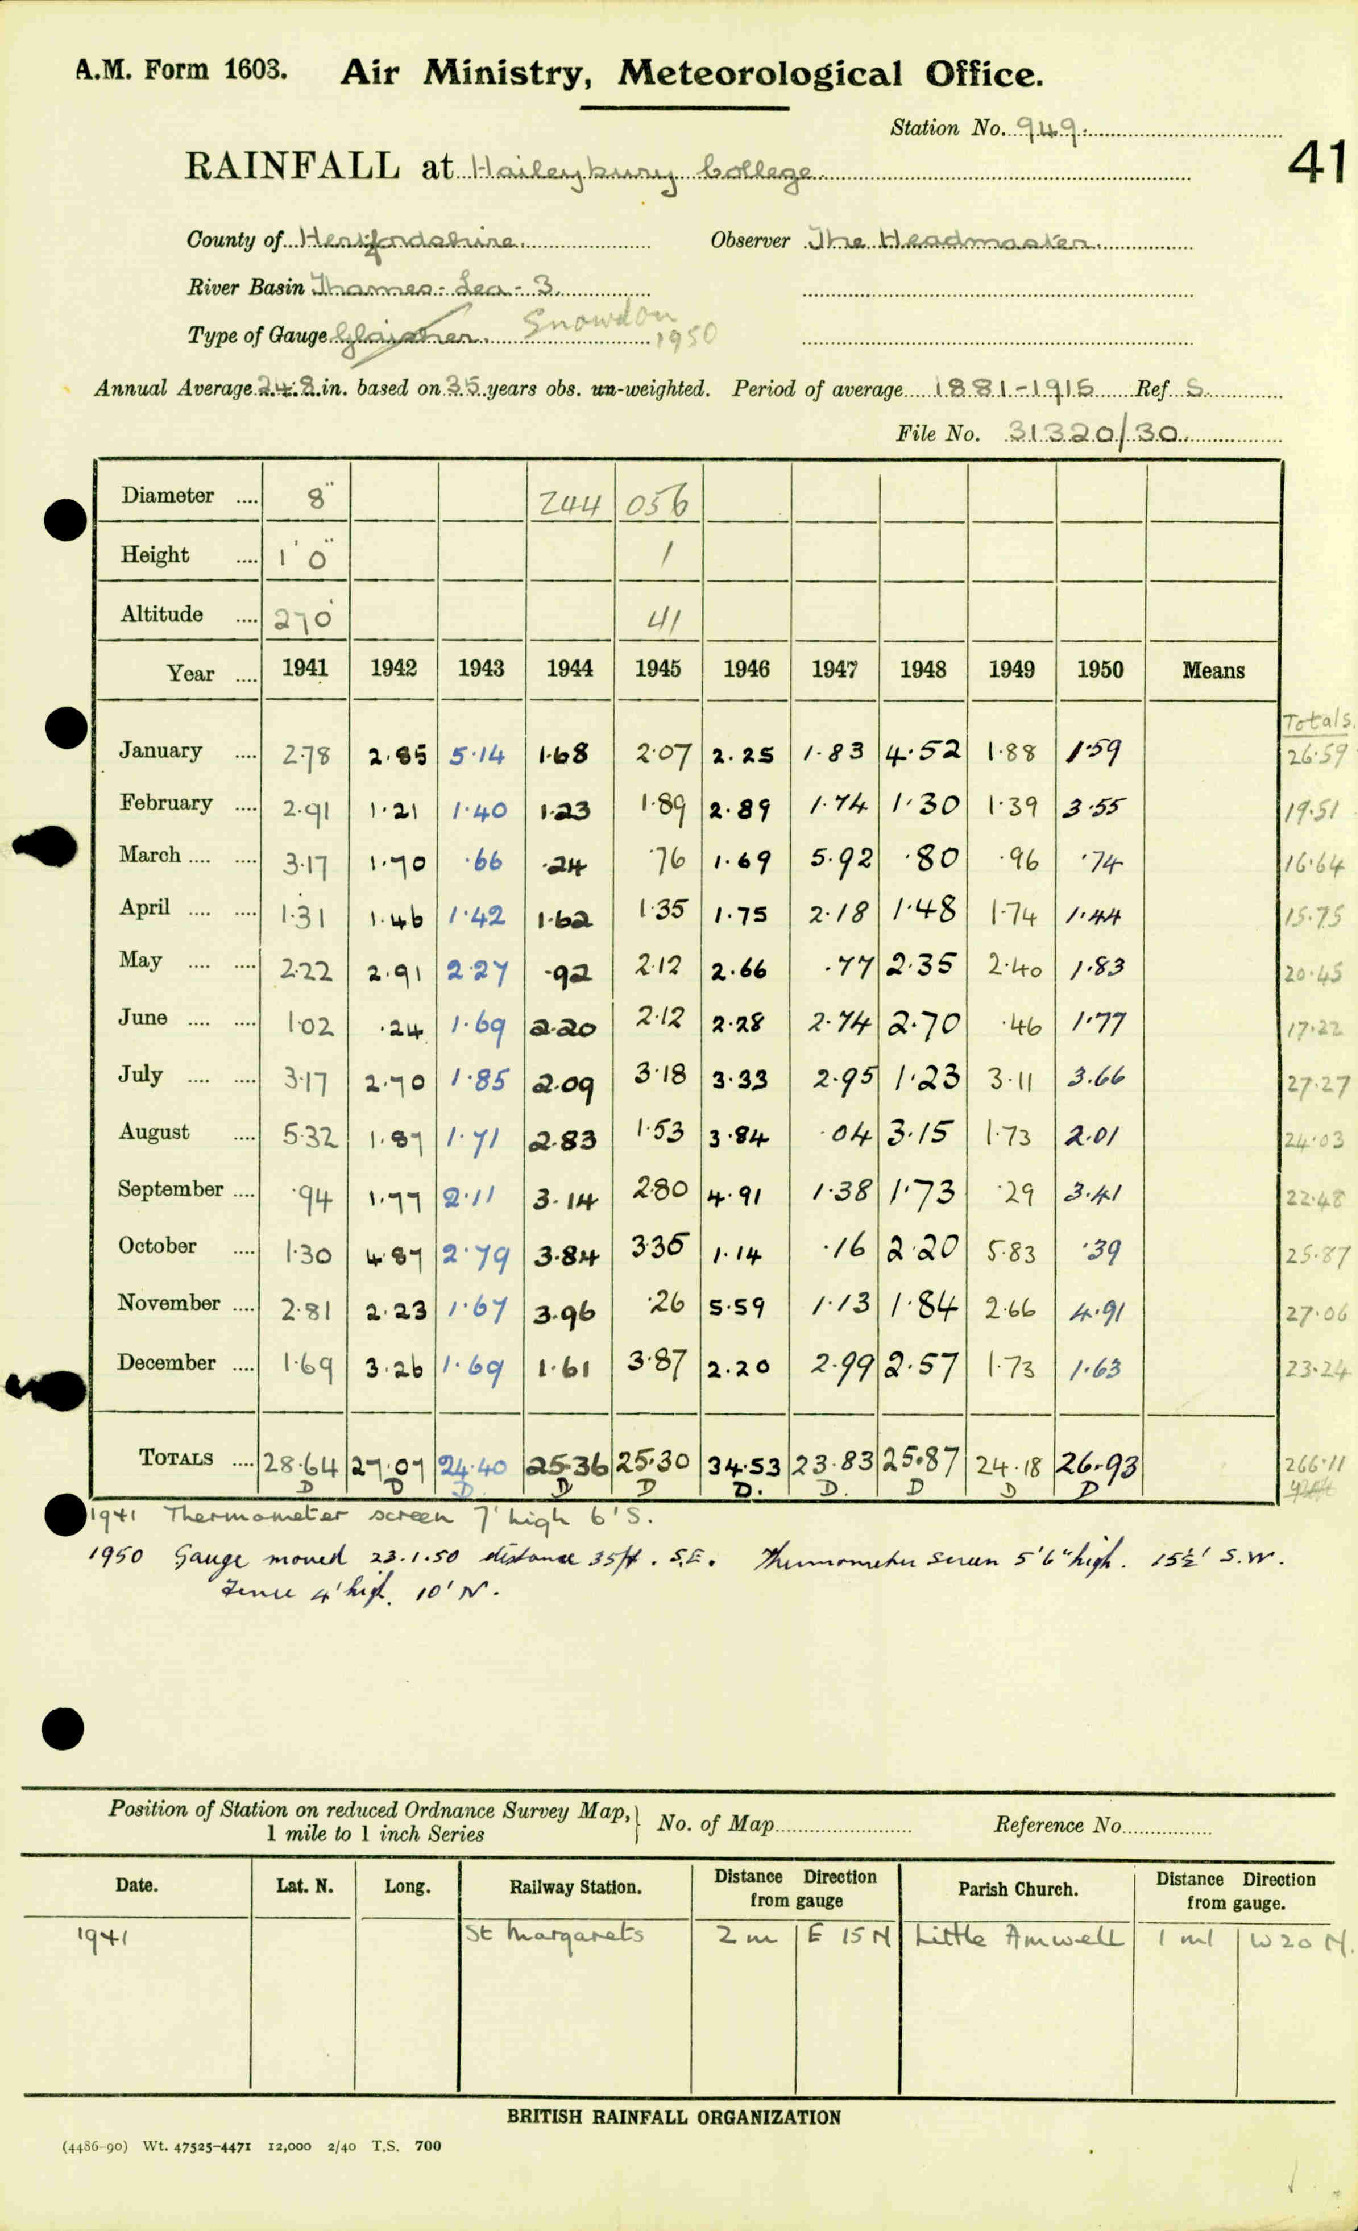 A.M. Form 1603. Air Ministry, Meteorological Office.
Station No. 949.
41
RAINFALL at Haileybury College
County of Hertfordshire. Observer The Headmaster.
River Basin Thames - Lea - 3
Type of Gauge Glaisher. Snowdon 1950
Annual Average 24.8 in. based on 35 years obs. un-weighted. Period of average 1881-1915 Ref S.
File No. 31320/30
Diameter .... 8" 244 056
Height .... 1' 0" 1
Altitude .... 270' 41
Year .... 1941 1942 1943 1944 1945 1946 1947 1948 1949 1950 Means
Totals
January .... 2.78 2.85 5.14 1.68 2.07 2.25 1.83 4.52 1.88 1.59 26.59
February .... 2.91 1.21 1.40 1.23 1.89 2.89 1.74 1.30 1.39 3.55 19.51
March .... .... 3.17 1.70 .66 .24 .76 1.69 5.92 .80 .96 .74 16.64
April .... .... 1.31 1.46 1.42 1.62 1.35 1.75 2.18 1.48 1.74 1.44 15.75
May .... .... 2.22 2.91 2.27 .92 2.12 2.66 .77 2.35 2.40 1.83 20.45
June .... .... 1.02 .24 1.69 2.20 2.12 2.28 2.74 2.70 .46 1.77 17.22
July .... .... 3.17 2.70 1.85 2.09 3.18 3.33 2.95 1.23 3.11 3.66 27.27
August .... 5.32 1.87 1.71 2.83 1.53 3.84 .04 3.15 1.73 2.01 24.03
September .... .94 1.77 2.11 3.14 2.80 4.91 1.38 1.73 .29 3.41 22.48
October .... 1.30 4.87 2.79 3.84 3.35 1.14 .16 2.20 5.83 .39 25.87
November .... 2.81 2.23 1.67 3.96 .26 5.59 1.13 1.84 2.66 4.91 27.06
December .... 1.69 3.26 1.69 1.61 3.87 2.20 2.99 2.57 1.73 1.63 23.24
TOTALS .... 28.64 27.07 24.40 25.36 25.30 34.53 23.83 25.87 24.18 26.93 266.11
D D D. D D D. D. D D D
1941 Thermometer screen 7' high 6' S.
1950 Gauge moved 23.1.50 distance 35ft. S.E. Thermometer screen 5'6" high. 15½' S.W.
Fence 4' high. 10' N.
Position of Station on reduced Ordnance Survey Map, 1 mile to 1 inch Series } No. of Map Reference No.
Date. Lat. N. Long. Railway Station. Distance Direction from gauge Parish Church. Distance Direction from gauge.
1941 St Margarets 2 m E 15 N Little Amwell 1 ml W 20 N.
BRITISH RAINFALL ORGANIZATION
(4486-90) Wt. 47525-4471 12,000 2/40 T.S. 700